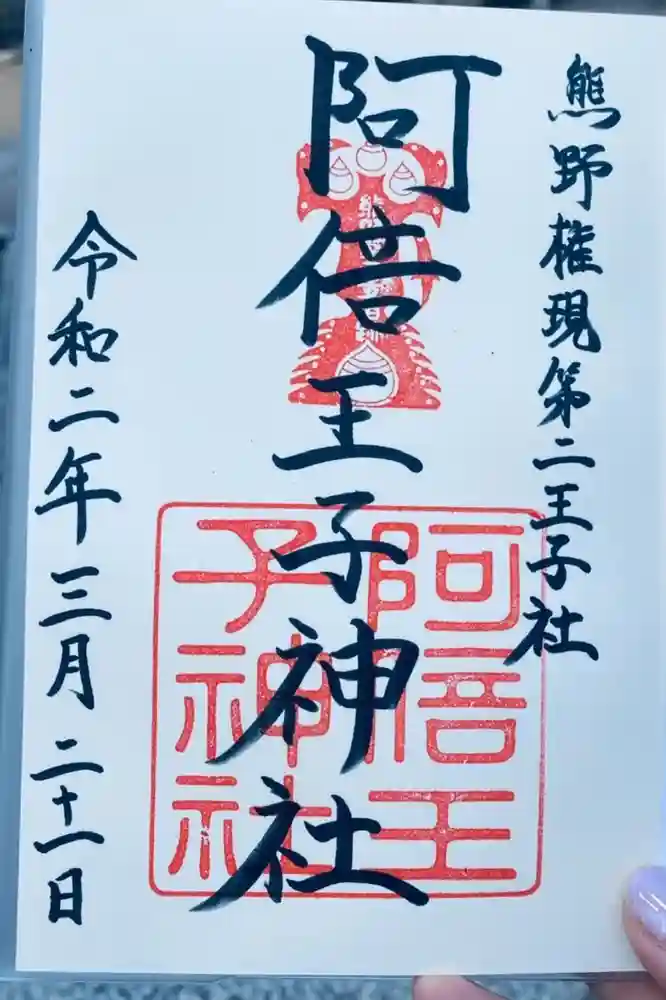 熊野権現第二王子社
阿倍王子神社
令和二年三月二十一日
阿倍王子神社